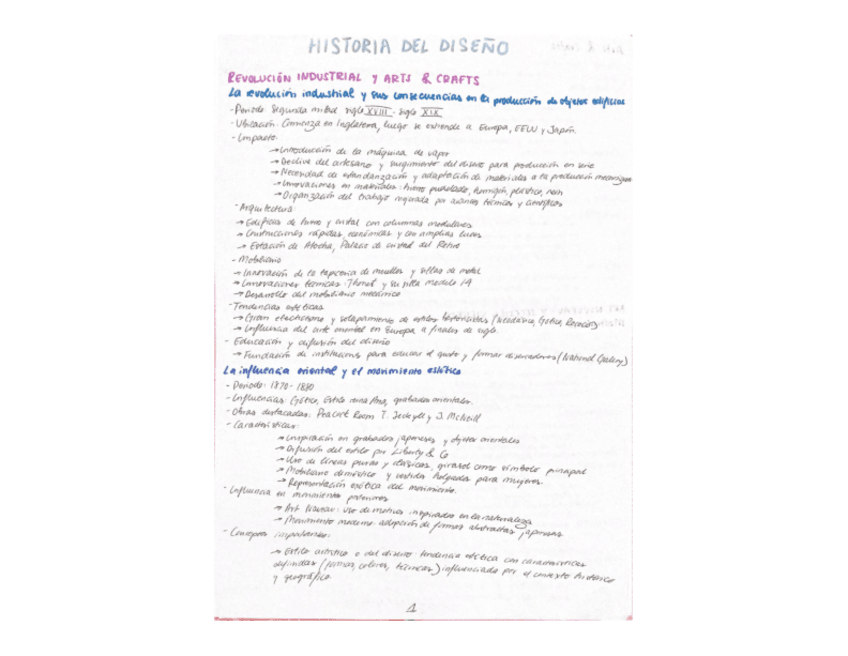 HISTORIA DEL DISEÑO
REVOLUCIÓN INDUSTRIAL Y ARTS & CRAFTS
La revolución industrial y sus consecuencias en la producción de objetos edificios
- Periodo Segunda mitad siglo XVIII - siglo XIX
- Ubicación: Comienza en Inglaterra, luego se extiende a Europa, EEUU y Japón.
- Impacto:
→ Introducción de la máquina de vapor
→ Declive del artesano y surgimiento del diseño para producción en serie
→ Necesidad de estandarización y adaptación de materiales a la producción mecánica
→ Innovaciones en materiales: hierro pudelado, hormigón, plástico,
→ Organización del trabajo por avances técnicos y científicos
- Arquitectura:
→ Edificios de hierro y cristal con columnas modulares
→ Construcciones rápidas, económicas y con amplias luces
→ Estación de Atocha, Palacio de cristal del Retiro
- Mobiliario
→ Innovación de la tapicería de muelles y sillas de metal
→ Innovaciones técnicas: Thonet y su silla modelo 14
→ Desarrollo del mobiliario mecánico
- Tendencias estéticas
→ Gran eclecticismo y solapamiento de estilos historicistas (Neoclásico, Gótico, Rococó)
→ Influencia del arte oriental en Europa a finales de siglo.
- Educación y difusión del diseño
→ Fundación de instituciones para educar el gusto y formar diseñadores (National Gallery)
La influencia oriental y el movimiento estético
- Periodo: 1870 - 1880
- Influencias: Gótico, Estilo reina Ana, grabados orientales.
- Obras destacadas: Peacock Room T. Jeckyll y J. McNeill
- Características:
→ Inspiración en grabados japoneses y objetos orientales
→ Difusión del estilo por Liberty & Co
→ Uso de líneas puras y clásicas, girasol como símbolo principal
→ Mobiliario doméstico y vestidos holgados para mujeres.
→ Representación estética del movimiento.
- Influencia en movimientos posteriores
→ Art Nouveau: uso de motivos inspirados en la naturaleza
→ Movimiento moderno: adopción de formas abstractas japonesas
- Conceptos importantes:
→ Estilo artístico o del diseño: tendencia estética con características
definidas (formas, colores, técnicas) influenciada por el contexto histórico
y geográfico
1